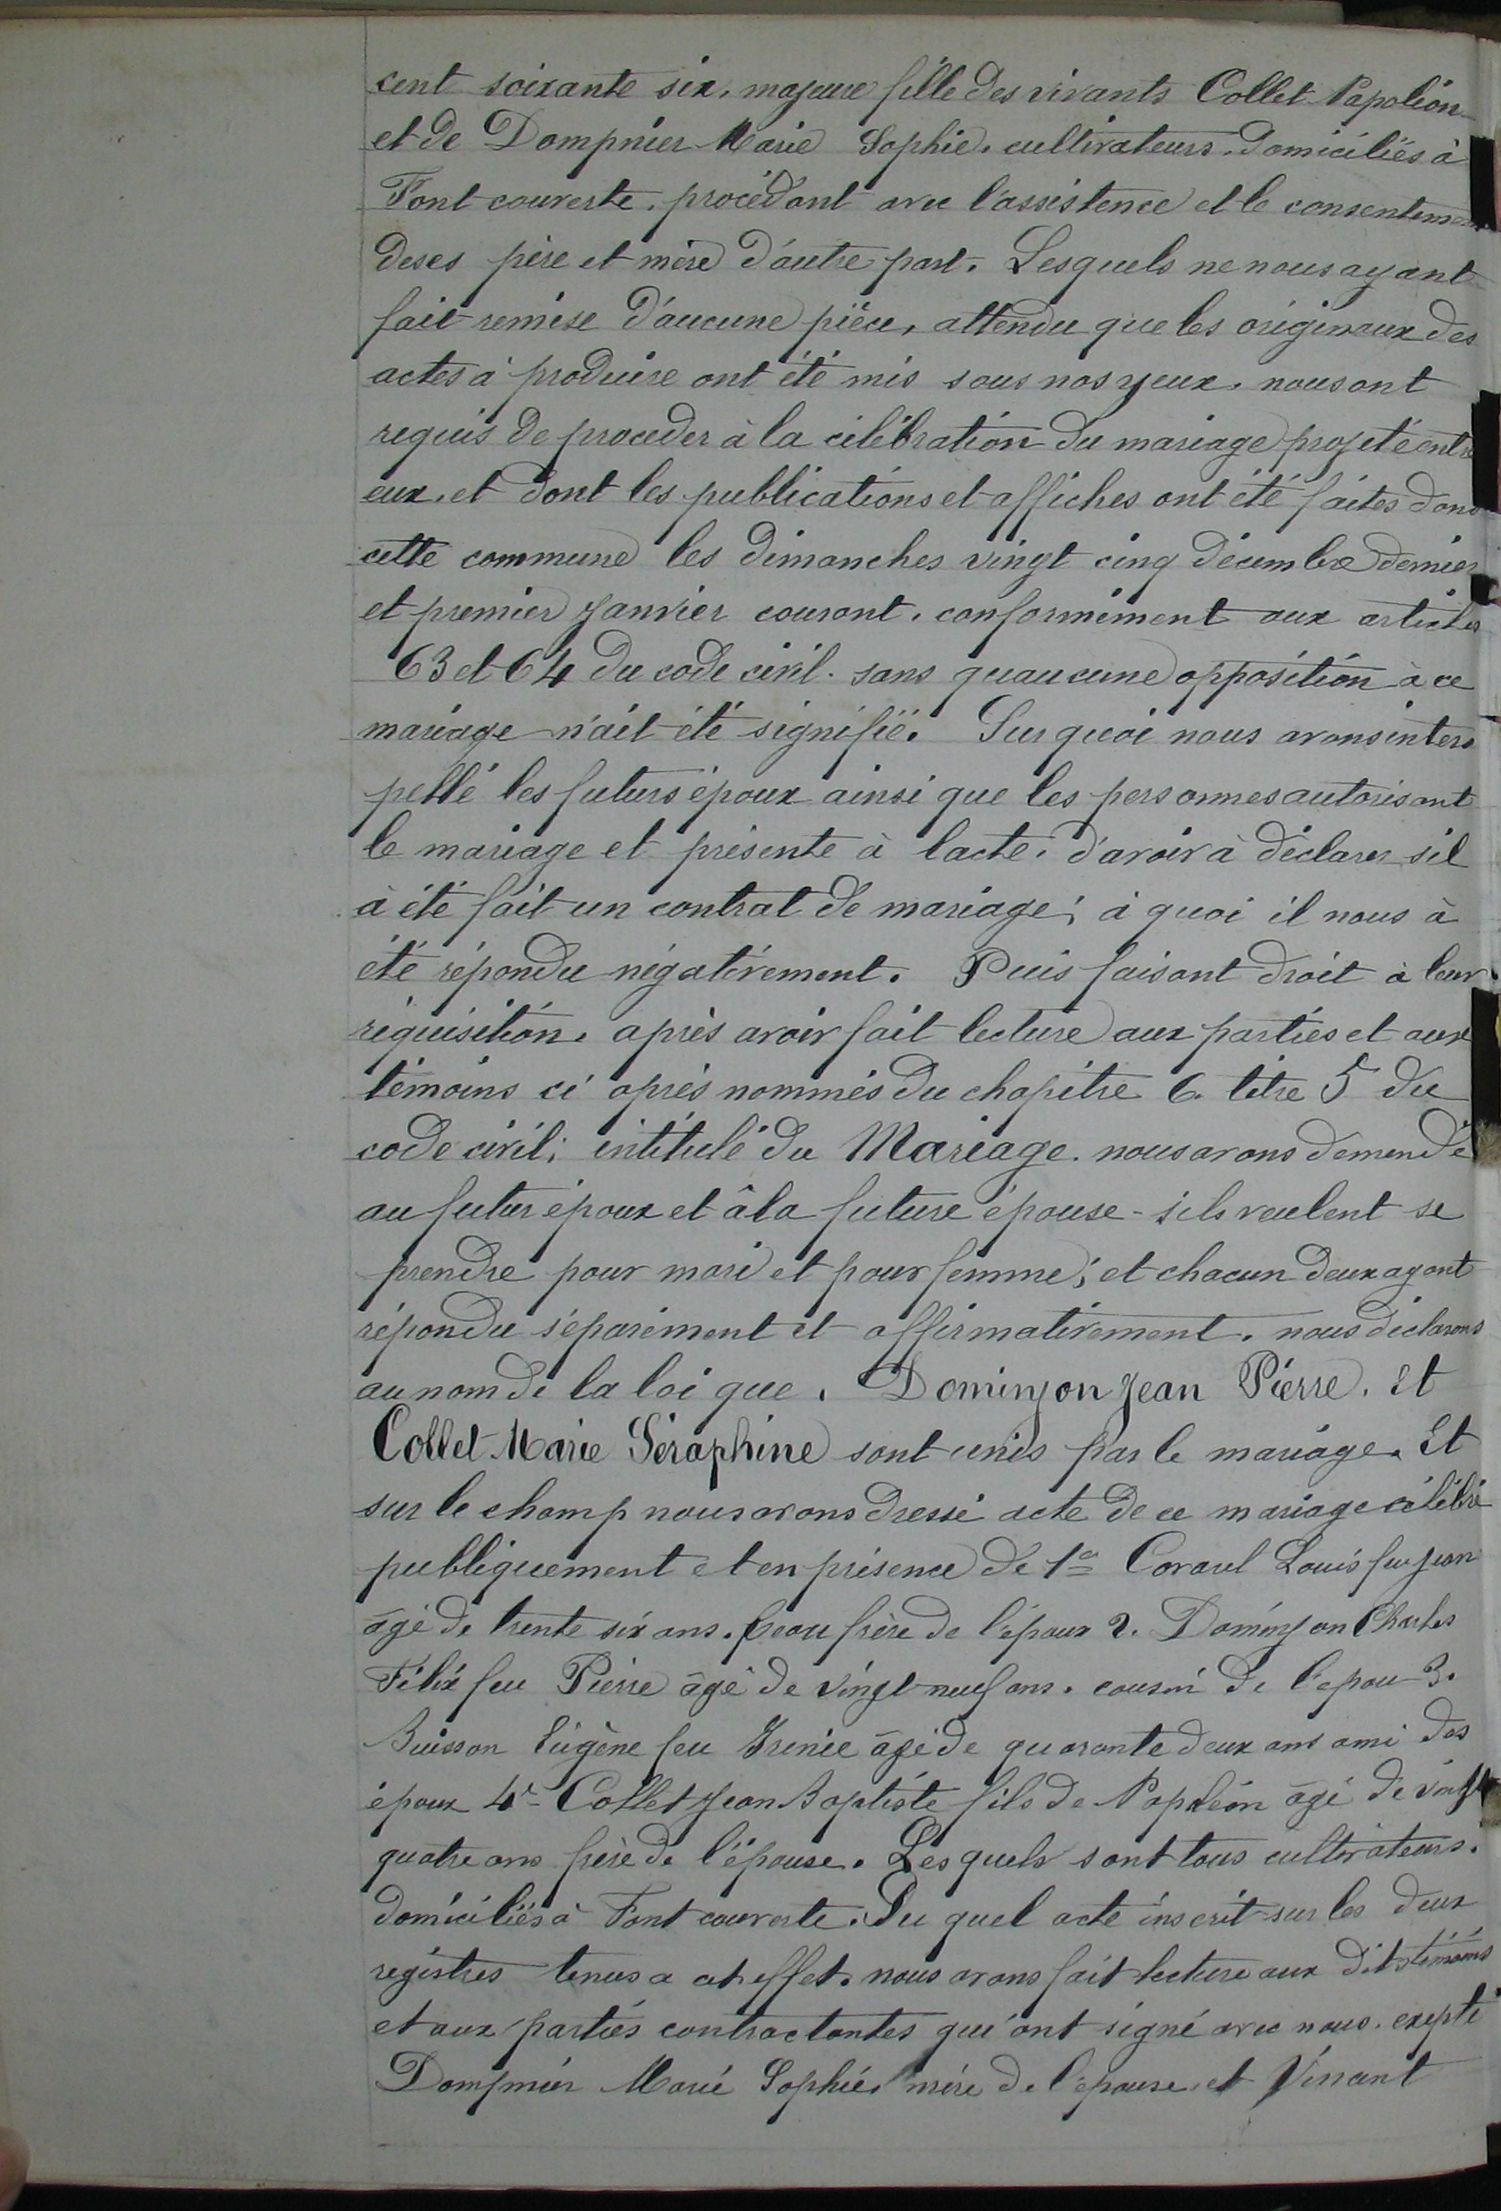 cent soixante six, majeure fille des vivants Collet Napoléon
et de Dompnier Marie Sophie, cultivateurs, domiciliés à
Font couverte, procédant avec l'assistence et le consentement
deses père et mère d'autre part. Lesquels ne nous ayant
fait remise d'aucune pièce, attendu que les originaux des
actes à produire ont été mis sous nos yeux, nous ont
requis de proceder à la célébration du mariage projeté entre
eux, et dont les publications et affiches ont été faites dans
cette commune les dimanches vingt cinq décembre dernier
et premier Janvier courant, conformément aux articles
63 et 64 du code civil. sans qu'aucune opposition à ce
mariage n'ait été signifié. Sur quoi nous avons inter
pellé les futurs époux ainsi que les personnes autorisant
le mariage et présente à lacte, d'avoir à déclarer sil
à été fait un contrat de mariage; à quoi il nous à
été répondu négativement. Puis faisant droit à leur
réquisition, après avoir fait lecture aux parties et aux
témoins ci après nommés du chapitre 6. titre 5 du
code civil; intitulé du Mariage. nous avons demendé
au futur époux et à la future épouse - sils veulent se
prendre pour mari et pour femme; et chacun deux ayant
répondu séparément et affirmativement, nous déclarons
au nom de la loi que, Dominjon Jean Pierre, et
Collet Marie Séraphine sont unis par le mariage. Et
sur le champ nous avons dressé acte de ce mariage célébré
publiquement et en présence de 1er Coraul Louis feu Jean
âgé de trente six ans, beau frère de l'époux 2. Dominjon Charles
Félix feu Pierre âgé de vingt neuf ans, cousin de l'epou 3.
Buisson Eugène feu Irénée âgé de quarante deux ans ami des
époux 4e Collet Jean Baptiste fils de Napoléon âgé de vingt
quatre ans frère de l'épouse. Lesquels sont tous cultivateurs.
domiciliés à Font couverte. Du quel acte inscrit sur les deux
registres tenus a cet effet, nous avons fait lecture aux dits témoins
et aux parties contractantes qui ont signé avec nous, exepté
Dompnier Marie Sophie, mère de l'épouse, et Vincent